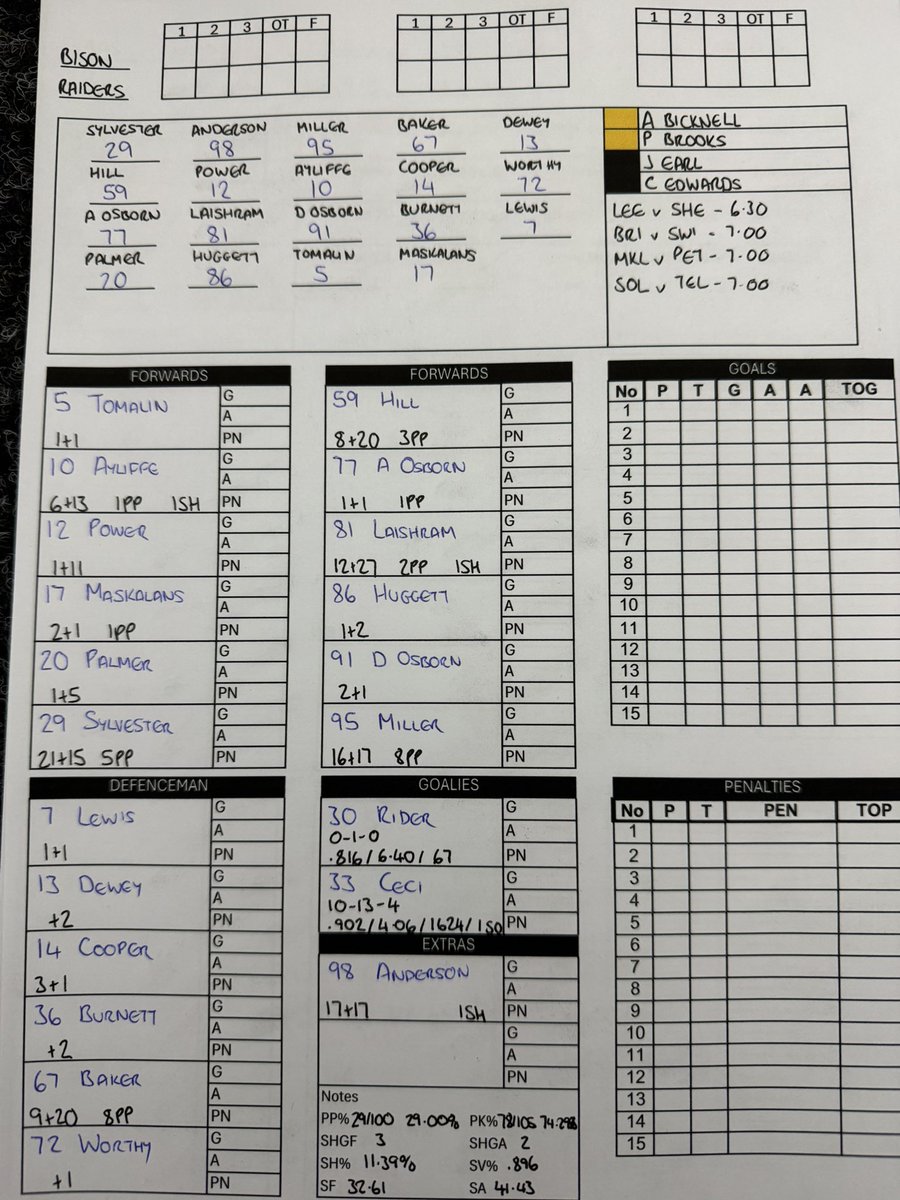 1 2 3 OT F
1 2 3 OT F
1 2 3 OT F
BISON
RAIDERS
SYLVESTER ANDERSON MILLER BAKER DEWEY
29 98 95 67 13
HILL POWER AYLIFFE COOPER WORTHY
59 12 10 14 72
A OSBORN LAISHRAM D OSBORN BURNETT LEWIS
77 81 91 36 7
PALMER HUGGETT TOMALIN MASKALANS
20 86 5 17
A BICKNELL
P BROOKS
J EARL
C EDWARDS
LEE v SHE - 6.30
BRI v SWI - 7.00
MKL v PET - 7.00
SOL v TEL - 7.00
FORWARDS
5 TOMALIN G
A
1+1 PN
10 AYLIFFE G
A
6+13 1PP 1SH PN
12 POWER G
A
1+11 PN
17 MASKALANS G
A
2+1 1PP PN
20 PALMER G
A
1+5 PN
29 SYLVESTER G
A
21+15 5PP PN
FORWARDS
59 HILL G
A
8+20 3PP PN
77 A OSBORN G
A
1+1 1PP PN
81 LAISHRAM G
A
12+27 2PP 1SH PN
86 HUGGETT G
A
1+2 PN
91 D OSBORN G
A
2+1 PN
95 MILLER G
A
16+17 8PP PN
GOALS
No P T G A A TOG
1
2
3
4
5
6
7
8
9
10
11
12
13
14
15
DEFENCEMAN
7 LEWIS G
A
1+1 PN
13 DEWEY G
A
+2 PN
14 COOPER G
A
3+1 PN
36 BURNETT G
A
+2 PN
67 BAKER G
A
9+20 8PP PN
72 WORTHY G
A
+1 PN
GOALIES
30 RIDER G
0-1-0 A
.816/6.40/67 PN
33 CECI G
10-13-4 A
.902/4.06/1624/1SO PN
EXTRAS
98 ANDERSON G
A
17+17 1SH PN
G
A
PN
Notes
PP% 29/100 29.00% PK% 78/105 74.29%
SHGF 3 SHGA 2
SH% 11.39% SV% .896
SF 32.61 SA 41.43
PENALTIES
No P T PEN TOP
1
2
3
4
5
6
7
8
9
10
11
12
13
14
15